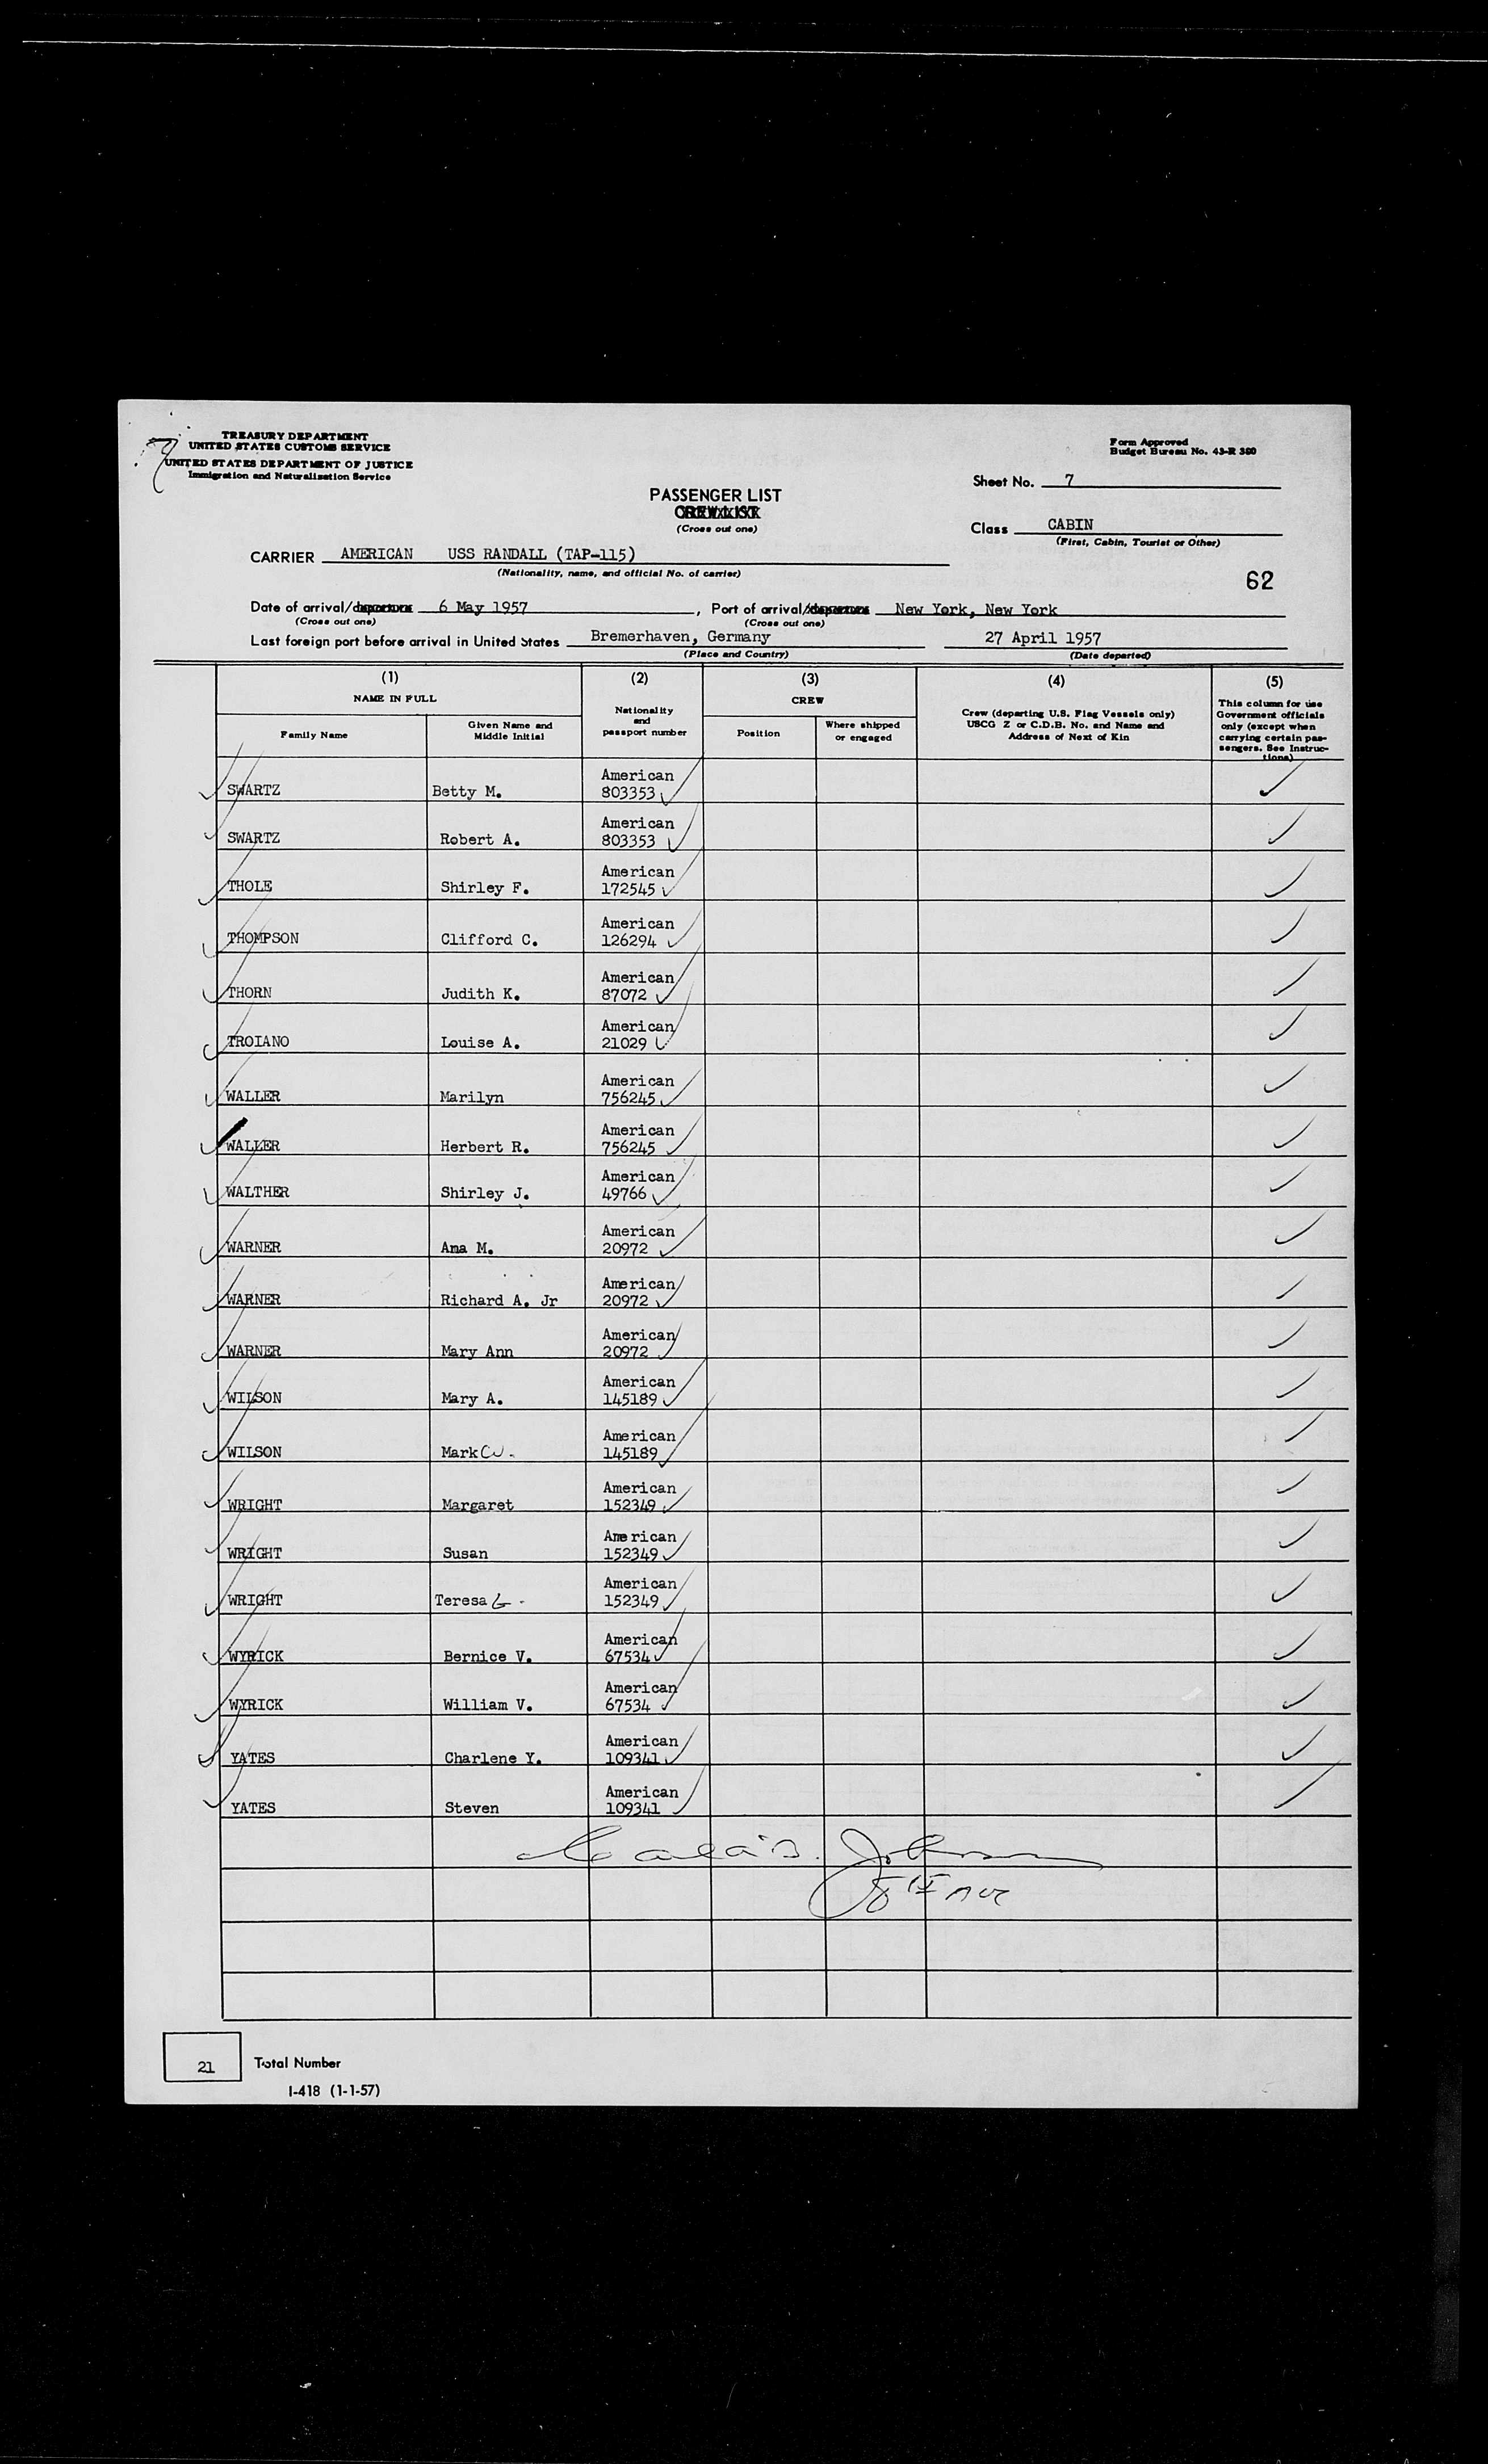 TREASURY DEPARTMENT
UNITED STATES CUSTOMS SERVICE
UNITED STATES DEPARTMENT OF JUSTICE
Immigration and Naturalization Service
Form Approved
Budget Bureau No. 43-R 380
Sheet No. 7
PASSENGER LIST
CREW LIST
(Cross out one)
Class CABIN
(First, Cabin, Tourist or Other)
CARRIER AMERICAN USS RANDALL (TAP-115)
(Nationality, name, and official No. of carrier)
62
Date of arrival/departure 6 May 1957, Port of arrival/departure New York, New York
(Cross out one) (Cross out one)
Last foreign port before arrival in United States Bremerhaven, Germany 27 April 1957
(Place and Country) (Date departed)
(1) (2) (3) (4) (5)
NAME IN FULL
Family Name
Given Name and
Middle Initial
Nationality
and
passport number
CREW
Position
Where shipped
or engaged
Crew (departing U.S. Flag Vessels only)
USCG Z or C.D.B. No. and Name and
Address of Next of Kin
This column for use
Government officials
only (except when
carrying certain pas-
sengers. See Instruc-
tions)
American
SWARTZ Betty M. 803353
American
SWARTZ Robert A. 803353
American
THOLE Shirley F. 172545
American
THOMPSON Clifford C. 126294
American
THORN Judith K. 87072
American
TROIANO Louise A. 21029
American
WALLER Marilyn 756245
American
WALLER Herbert R. 756245
American
WALTHER Shirley J. 49766
American
WARNER Ana M. 20972
American
WARNER Richard A. Jr 20972
American
WARNER Mary Ann 20972
American
WILSON Mary A. 145189
American
WILSON Mark W. 145189
American
WRIGHT Margaret 152349
American
WRIGHT Susan 152349
American
WRIGHT Teresa 152349
American
WYRICK Bernice V. 67534
American
WYRICK William V. 67534
American
YATES Charlene Y. 109341
American
YATES Steven 109341
Johnson
21 Total Number
I-418 (1-1-57)